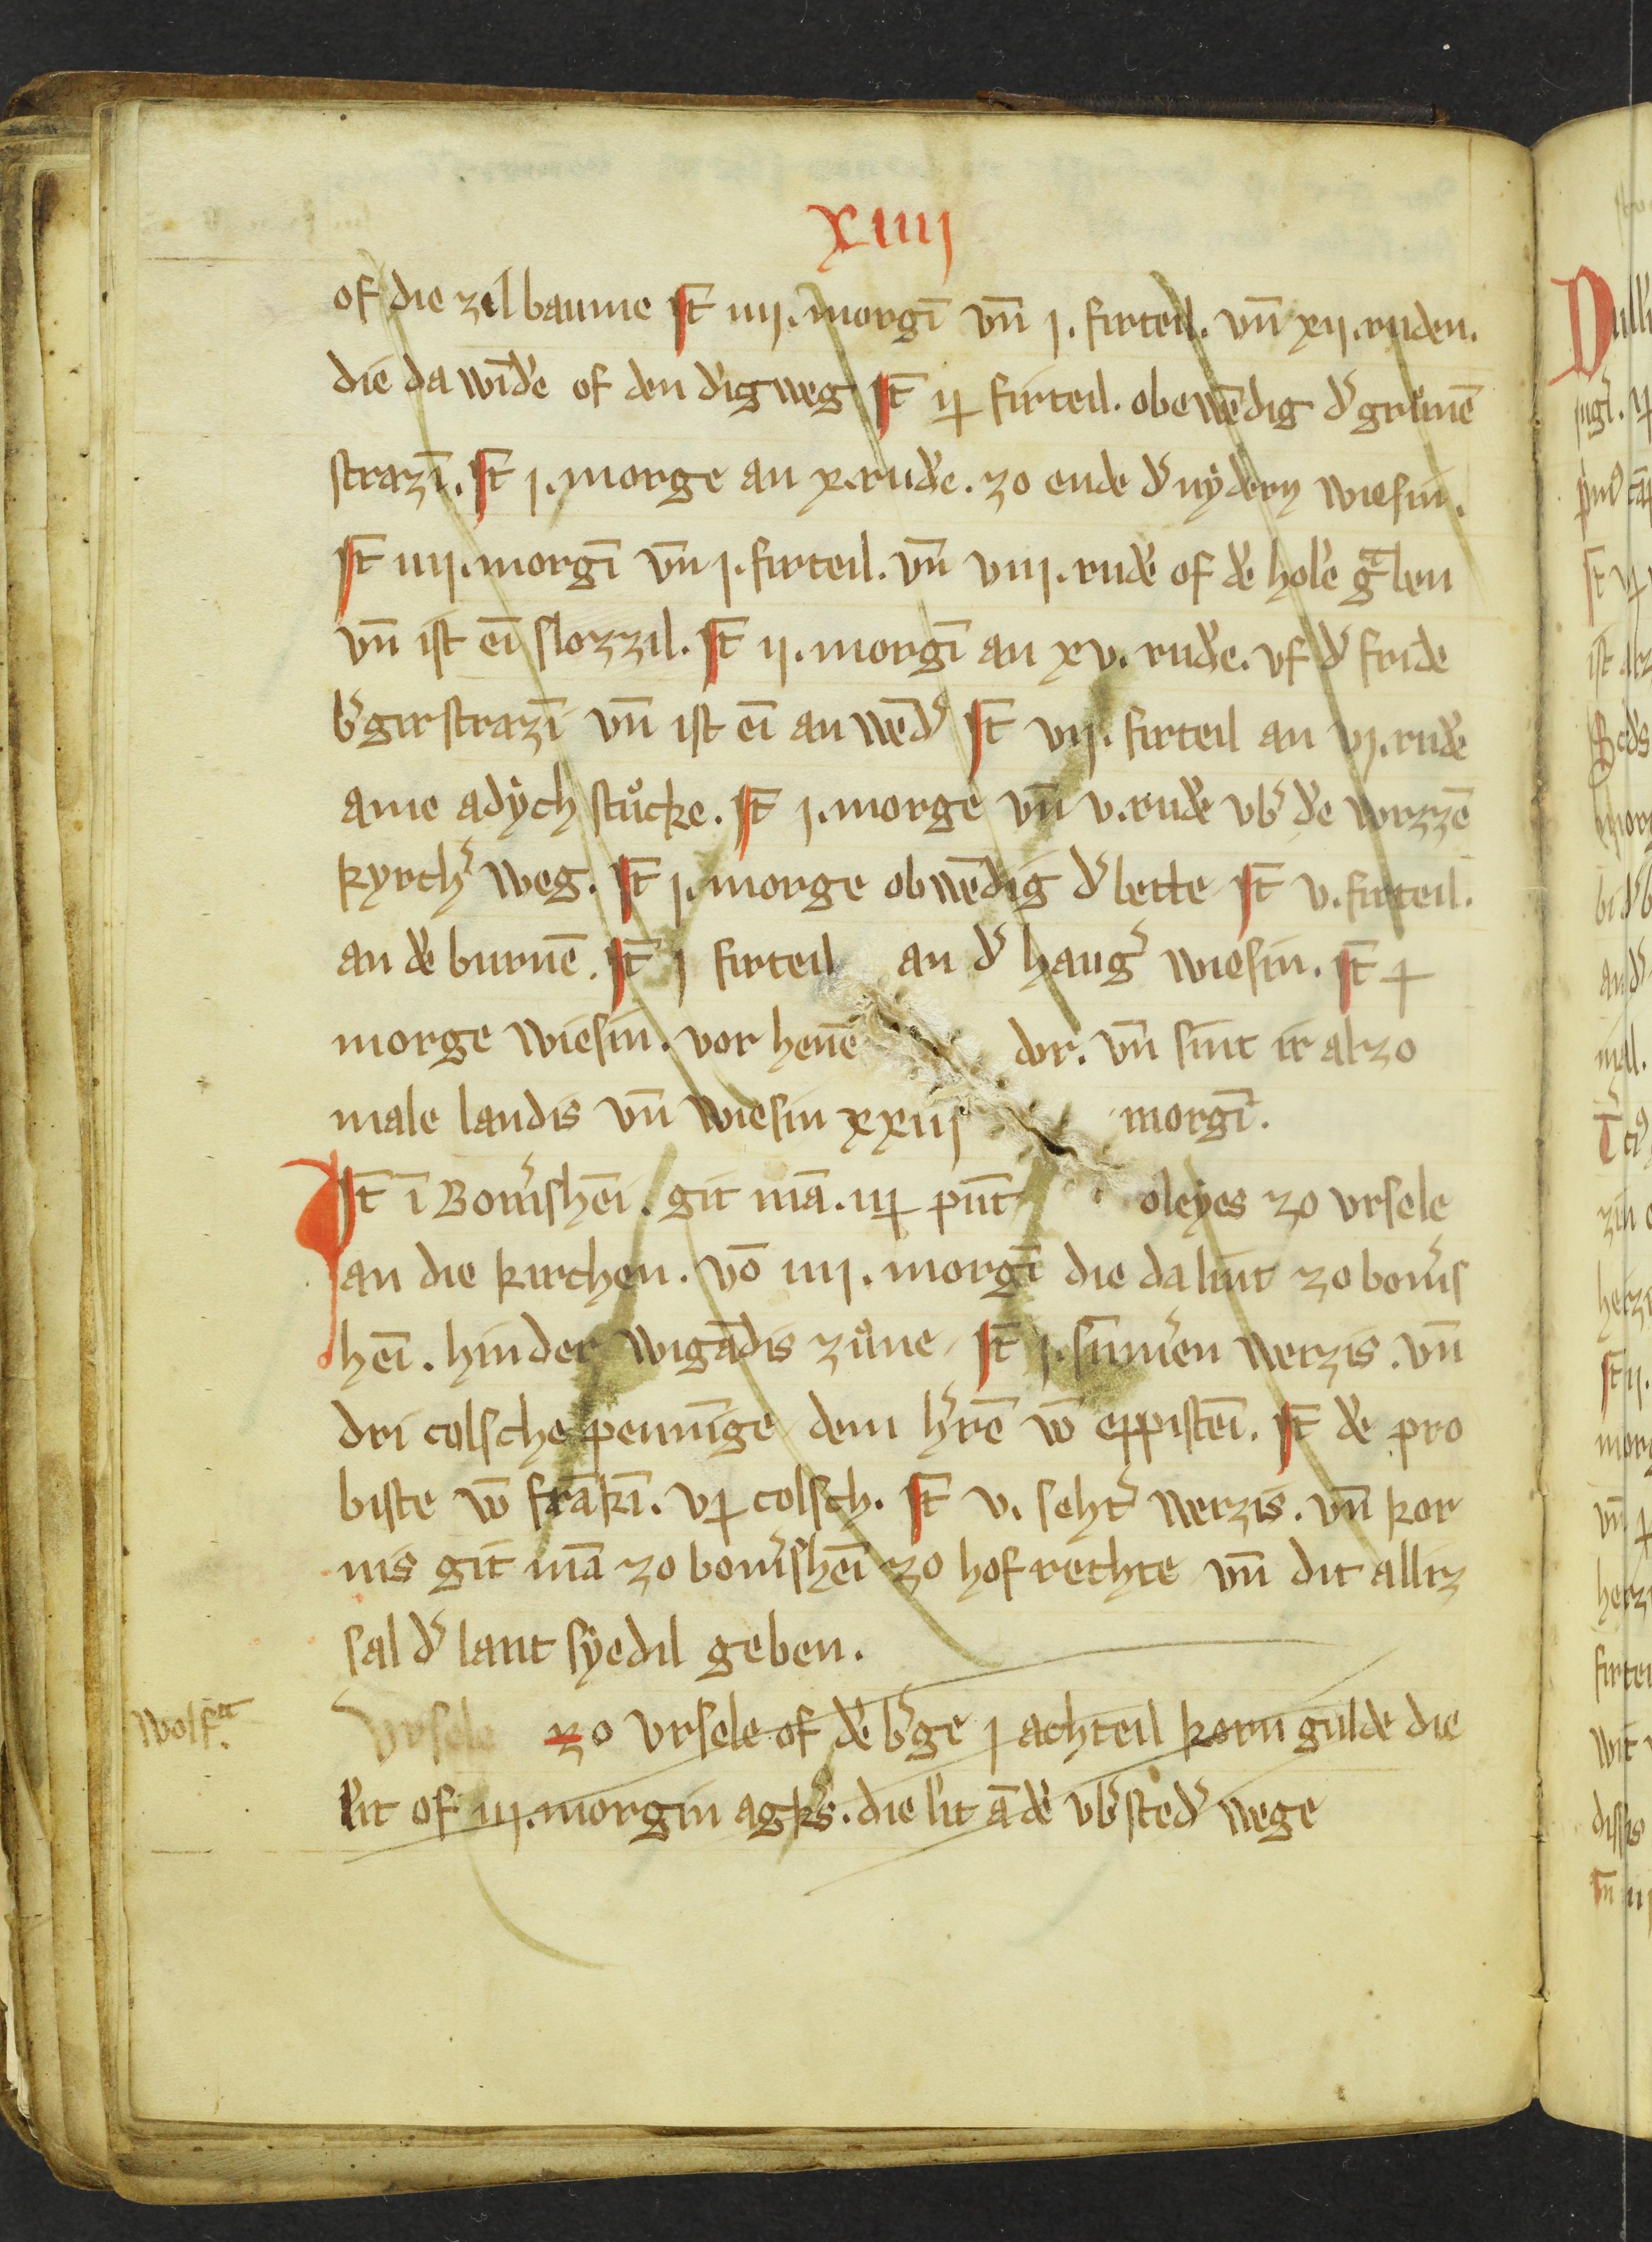 xiiij
of die zil baume It iiij. morgī vn̄ j. firteil. vn̄ xij. ruden.
die da wīdē of den dīgweg It ij firteil. obewēdig d' grůnē
strazī. It j. morge an x. rudē. zo ende d' nÿdern wiesin.
It iiij. morgī vn̄ j. firteil. vn̄ viij. rudē of dē holē gͣben
vn̄ ist eī slozzil. It ij. morgī an xv. rudē. vf d' fride
b'gir strazī vn̄ ist eī anwēd' It vij. firteil an vj. rudē
ame adÿch stůcke. It j. morge vn̄ v. rudē vb' dē wizzē
kyrch' weg. It j. morge obwēdig d' lette It v. firteil.
an dē burnē. It j firteil an d' haug' wiesin. It
morge wiesin. vor henē dor. vn̄ sint ir alzo
male landis vn̄ wiesin xxiij morgī.
It ī Bom'shēi. git mā. iij punt oleÿes zo vrsele
an die kirchen. vō iiij. morgī die da lint zo bom's
hēi. hinder wigādis zůne It j. sūm'en weizis. vn̄
dri colsche pennīge dem h'rē vō eppistēi. It dē pro
biste vō frākī. vj colsch. It v. seht' weizis. vn̄ kor
nis git mā zo bom'shēi zo hofrethte vn̄ dit alliz
sal d' lant sÿedil geben.
Wolfͣ. Vrsele zo vrsele of dē b'ge j achteil korn gulde die
lit of iij. morgin agk's. die lit ā dē vb'sted' wege